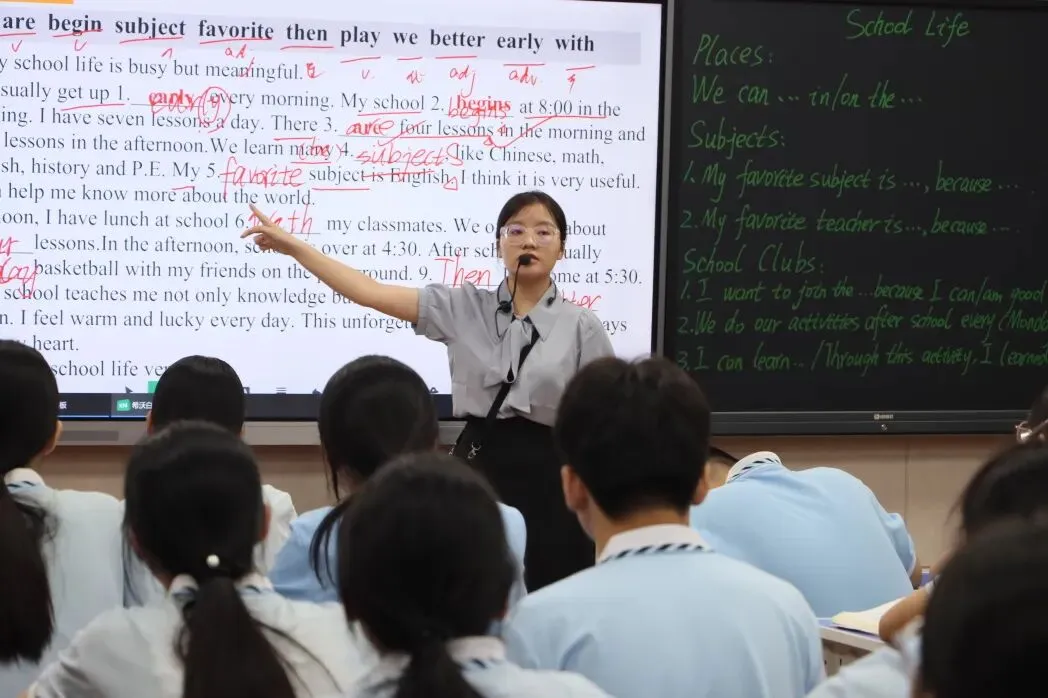 are begin subject favorite then play we better early with
v v n adj v adj adv
school life is busy but meaningful.
sually get up 1. early every morning. My school 2. begins at 8:00 in the
ing. I have seven lessons a day. There 3. are four lessons in the morning and
lessons in the afternoon.We learn many 4. subjects like Chinese, math,
sh, history and P.E. My 5. favorite subject is English. I think it is very useful.
help me know more about the world.
oon, I have lunch at school 6. with my classmates. We about
lessons.In the afternoon, over at 4:30. After ually
play basketball with my friends on the ground. 9. Then ome at 5:30.
school teaches me not only knowledge
n. I feel warm and lucky every day. This unforget ays
heart.
school life
School Life
Places:
We can ... in/on the ...
Subjects:
1. My favorite subject is ..., because ....
2. My favorite teacher is ..., because ....
School Clubs:
1. I want to join the ...because I can/am good
2. We do our activities after school every (Monda
3. I can learn... /Through this activity, I learned